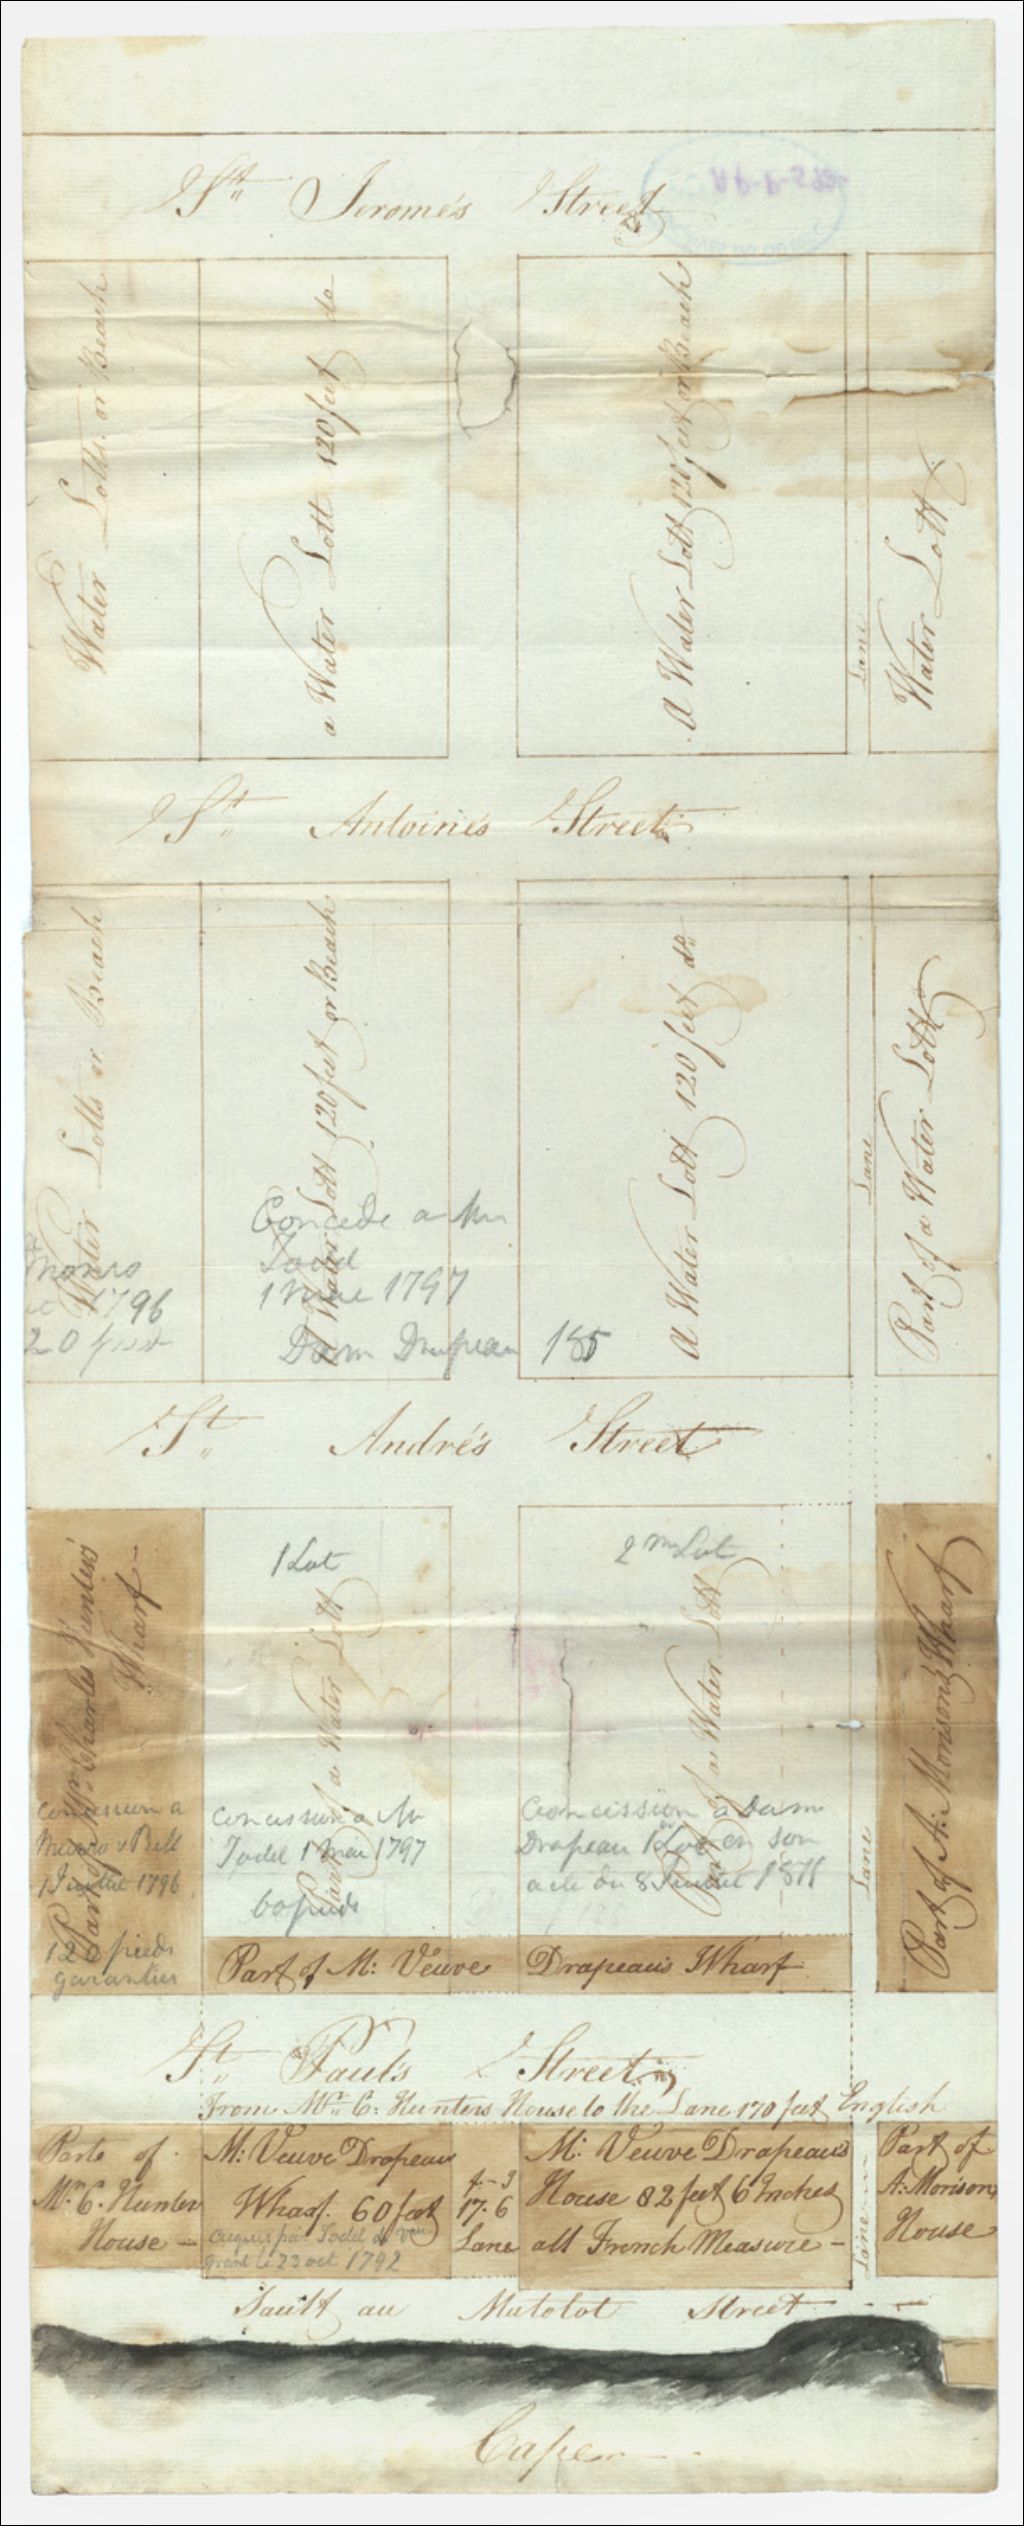 St. Jerome's Street
Water Lotts or Beach
a Water Lott 120 feet do
A Water Lott 120 feet or Beach
Lane
Water Lott
St. Antoine's Street
Water Lotts or Beach
A Water Lott 120 feet or Beach
A Water Lott 120 feet do.
Lane
Part of a Water Lott
Monro
1796
20 feet
Concede a Mr
Todd
1 Mai 1797
Dam Drapeau 185
St. André's Street
Part of Mr. Charles Hunter's
Wharf
Concession a
Munro & Bell
1 Juillet 1796
120 pieds
garanties
1 Lot
Part of a Water Lott
Concession a Mr
Todd 1 Mai 1797
60 pieds
2me Lot
Part of a Water Lott
Concession a Dam
Drapeau
acte du 8 Juillet
Part of M: Veuve Drapeau's Wharf
Lane
Part of A: Morison's Wharf
St. Paul's Street
From Mr. C: Hunters House to the Lane 170 feet English
Parte of
Mr. C. Hunter
House -
M: Veuve Drapeau
Wharf. 60 feet
acquis par Todd de
23 oct 1792
4-3
17.6
Lane
M: Veuve Drapeau's
House 82 feet 6 Inches
all French Measure -
Lane
Part of
A: Morison,
House
Sault au Matolot Street
Cape